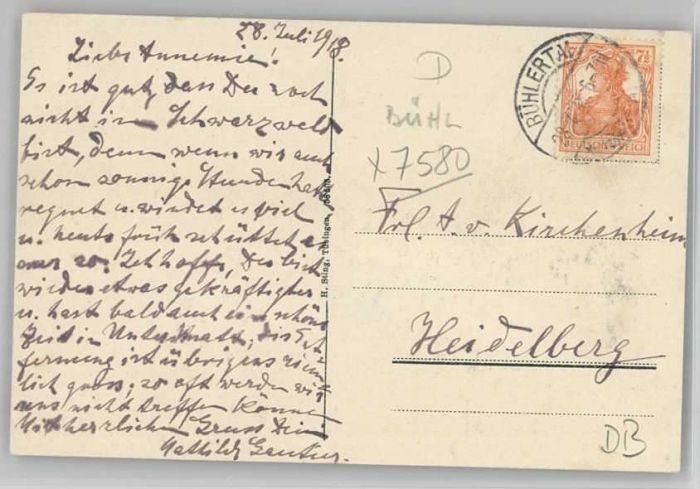 28. Juli 1918.
Liebe Annemie!
Es ist gut, dass Du noch
nicht im Schwarzwald
bist, denn wenn wir auch
schon sonnige Stunden hatten
regnet u. windet es viel
u. heute früh schüttet es
nur so. Ich hoffe, Du bist
wieder etwas gekräftigter
u. hast bald auch eine schöne
Zeit in, die Ent-
fernung ist übrigens ziem-
lich gross; so oft werden wir
uns nicht treffen können
Mit herzlichem Gruss Deine
Mathilde
H. Sting, Tübingen.
D
BÜHL
x 7580
BÜHLERTAL
7½
DEUTSCHES REICH
Frl. A. v. Kirchenheim
Heidelberg
DB